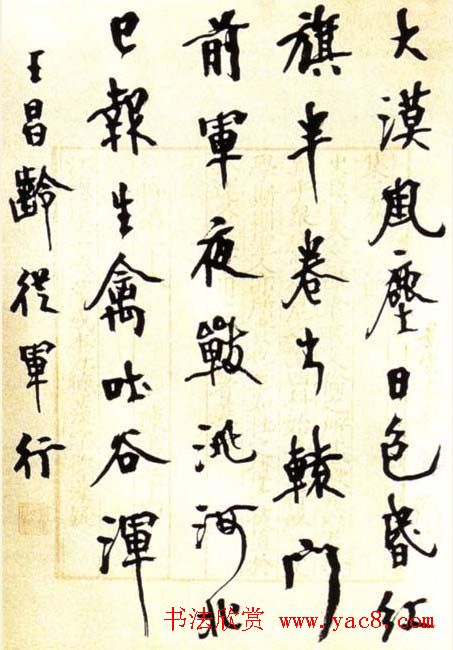 大漠風塵日色昏紅
旗半卷出轅門
前軍夜戰洮河北
已報生禽吐谷渾
王昌齡從軍行
书法欣赏 www.yac8.com